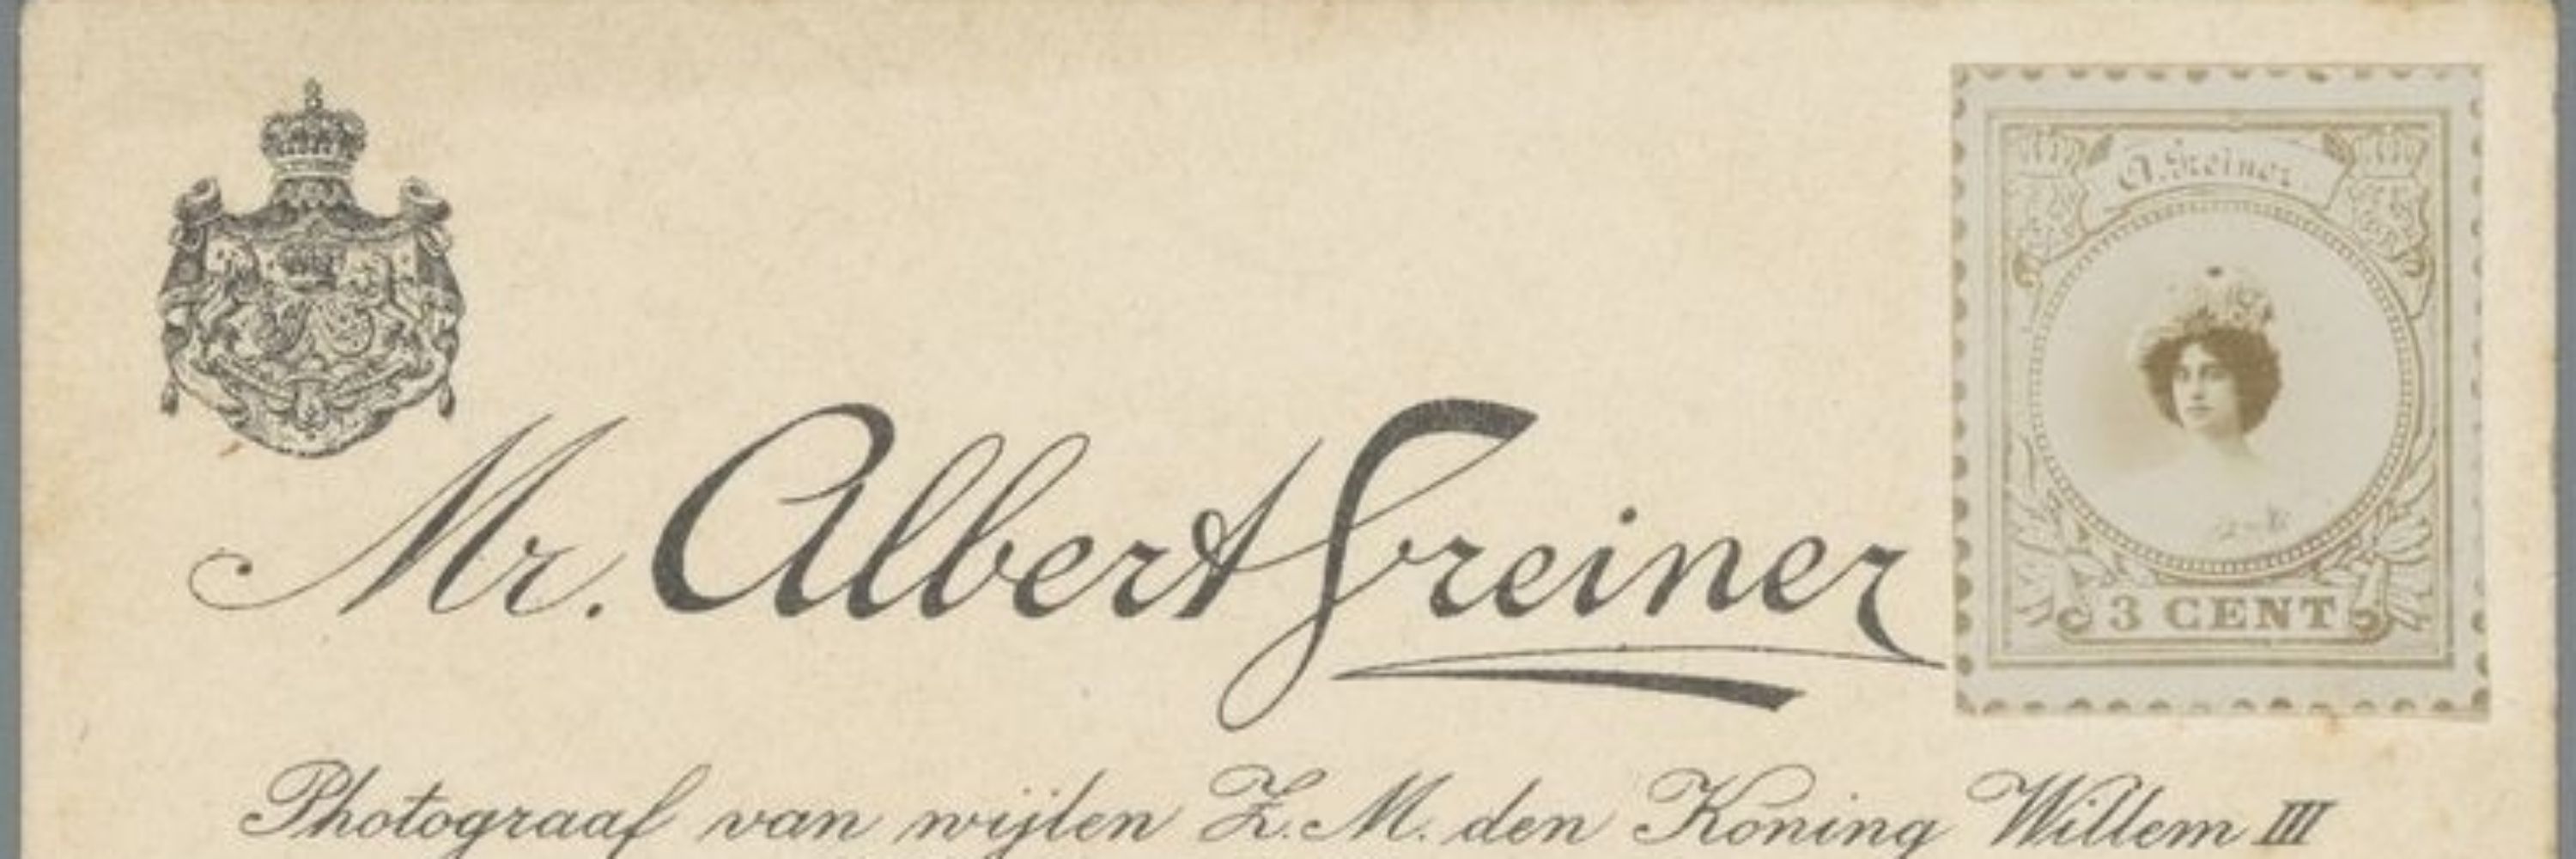 A. Greiner
3 CENT
Mr. Albert Greiner
Photograaf van wijlen Z. M. den Koning Willem III